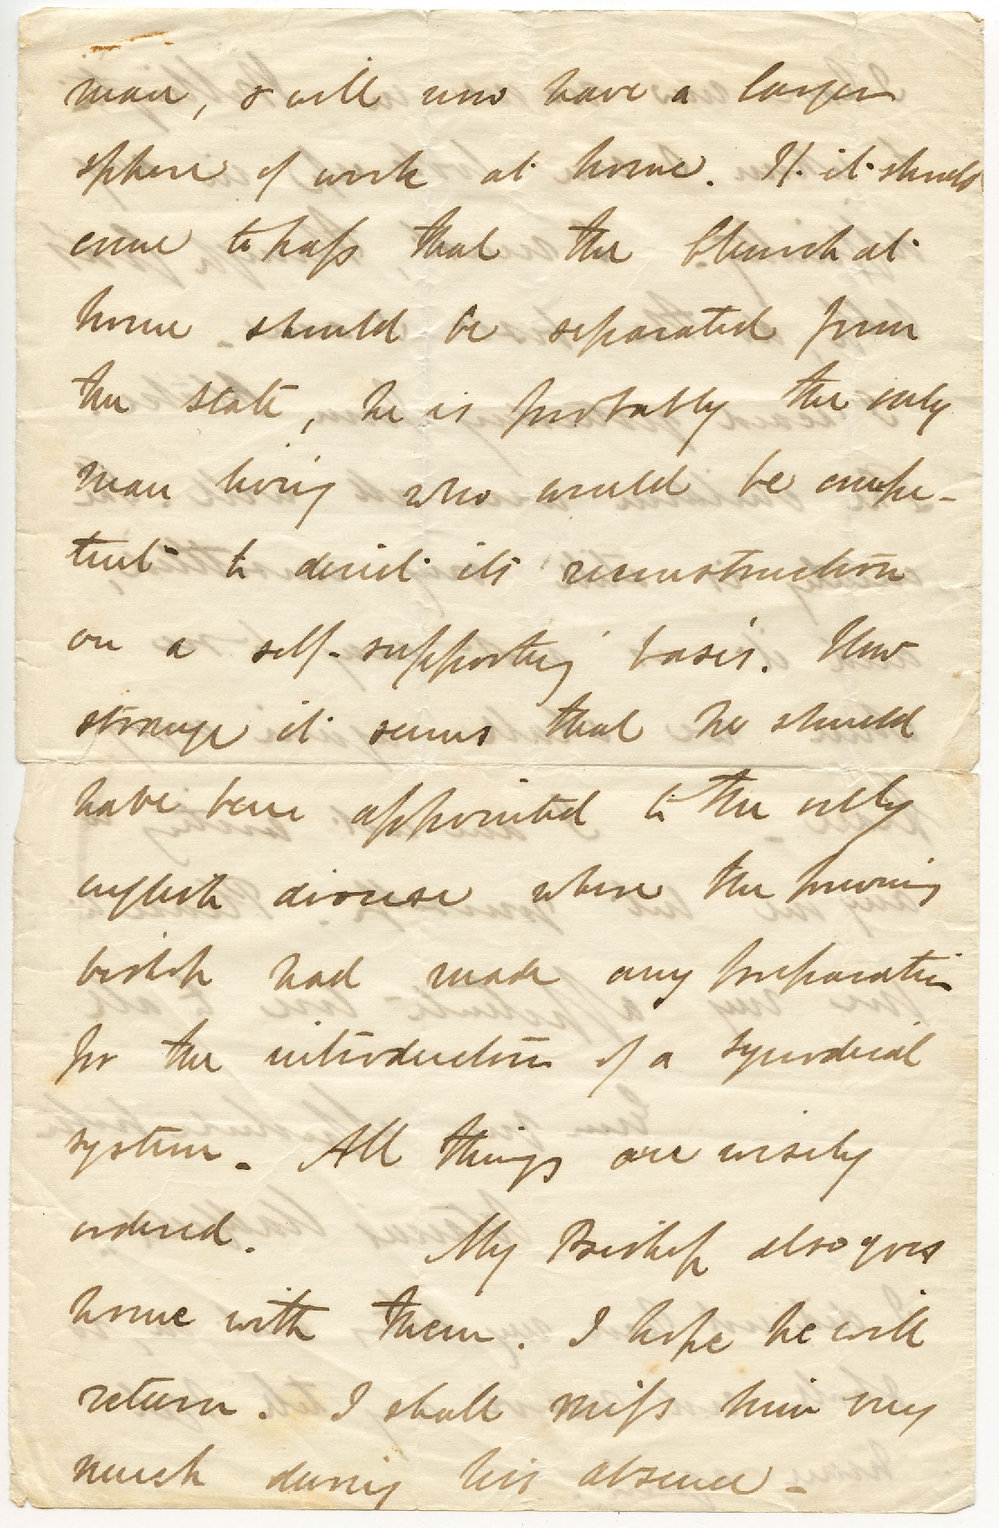 man, & will now have a larger
sphere of work at home. If it should
come to pass that the Church at
home should be separated from
the state, he is probably the only
man living who would be compe-
tent to direct its reconstruction
on a self-supporting basis. How
strange it seems that he should
have been appointed to the only
english diocese where the previous
bishop had made any preparation
for the introduction of a synodical
system. All things are wisely
ordered. My Bishop also goes
home with them. I hope he will
return. I shall miss him very
much during his absence -